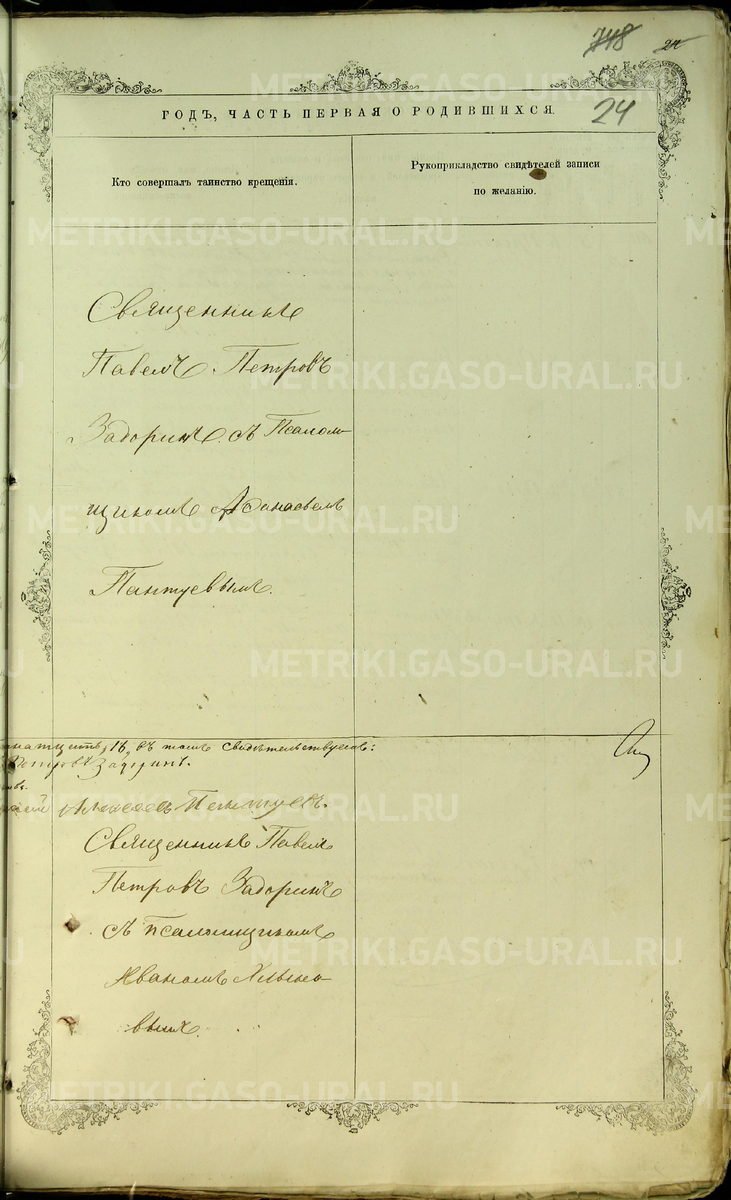 748 24
24
ГОДЪ, ЧАСТЬ ПЕРВАЯ О РОДИВШИХСЯ.
Кто совершалъ таинство крещенія.
Рукоприкладство свидѣтелей записи
по желанію.
Священникъ
Павелъ Петровъ
Задоринъ съ Псалом-
щикомъ Афанасьемъ
Пантуевымъ.
16, въ томъ свидѣтельствуемъ:
Петровъ Задоринъ.
Пантуевъ.
Священникъ Павелъ
Петровъ Задоринъ
съ псаломщикомъ
Иваномъ
вымъ.
METRIKI.GASO-URAL.RU